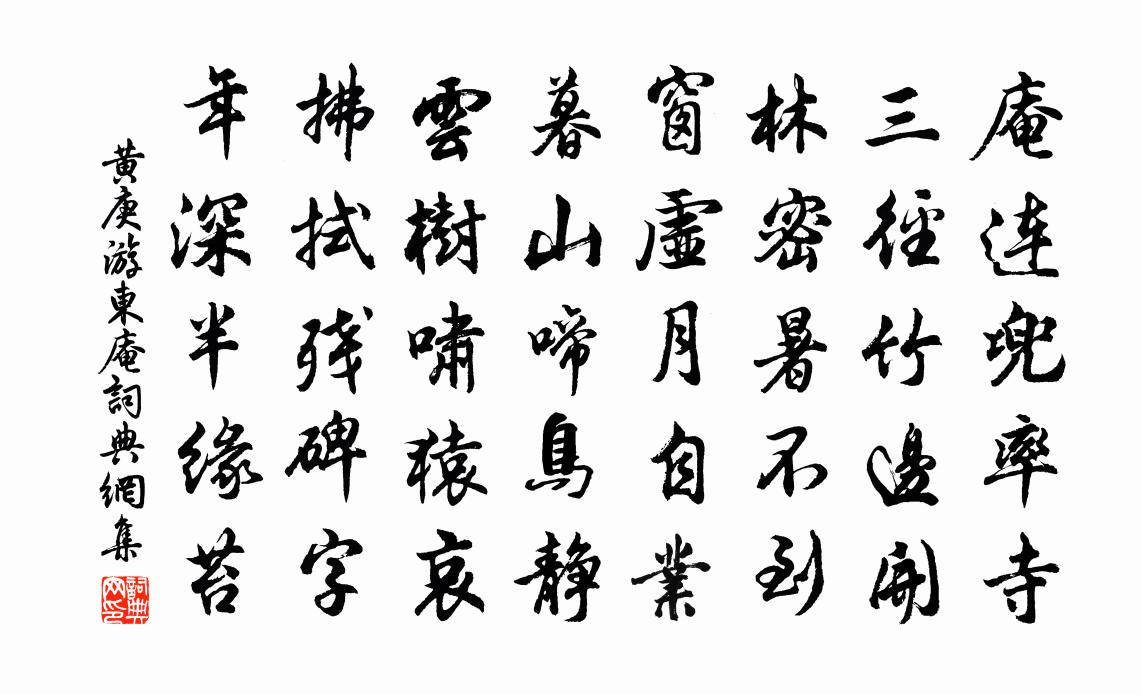 庵连兜率寺
三徑竹邊開
林密暑不到
窗虛月自業
暮山啼鳥静
雲樹嘯猿哀
拂拭残碑字
年深半緣苔
黄庚游東庵詞典網集
詞典网印